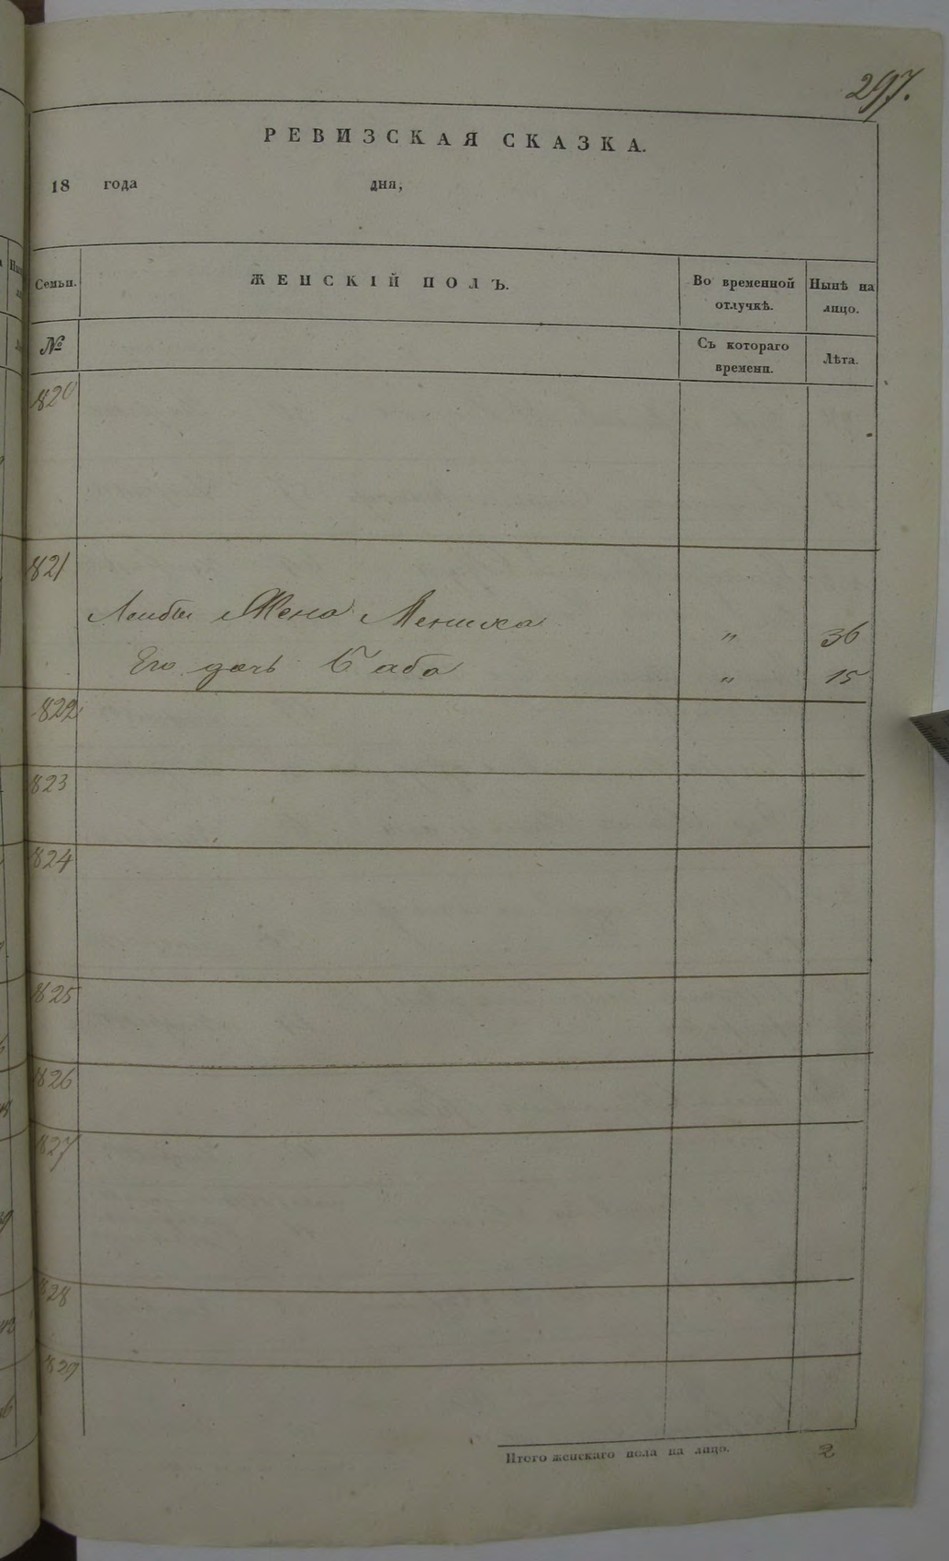 297.
РЕВИЗСКАЯ СКАЗКА.
18 года дня,
Семьи. ЖЕНСКІЙ ПОЛЪ. Во временной отлучкѣ. Нынѣ на лицо.
№ Съ котораго времени. Лѣта.
820
821
Лейбы Жена Мениха " 36
Его дочь Баба " 15
822
823
824
825
826
827
828
829
Итого женскаго пола на лицо. 2